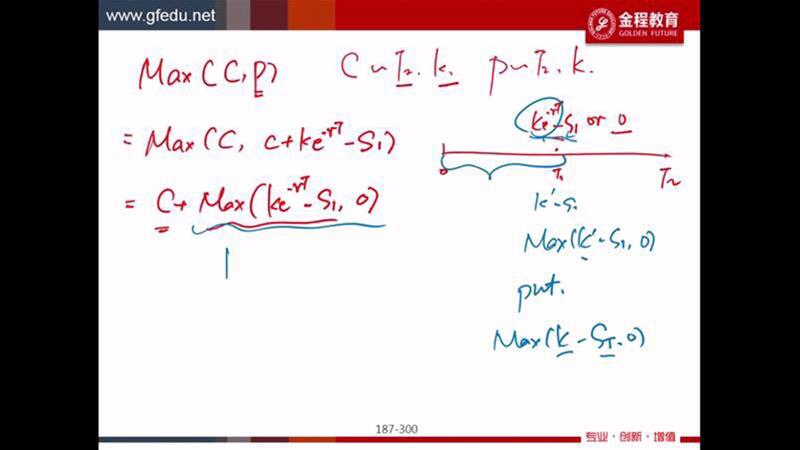 www.gfedu.net
金程教育
GOLDEN FUTURE
Max(C,P) C~T₂.k. p~T₂.k.
= Max(C, c+ke^-rT-S₁)
= C+ Max(ke^-rT-S₁, 0)
ke^-rT-S₁ or 0
0 T₁ T₂
k'-S₁
Max(k'-S₁,0)
put.
Max(k-S_T.0)
187-300
专业·创新·增值